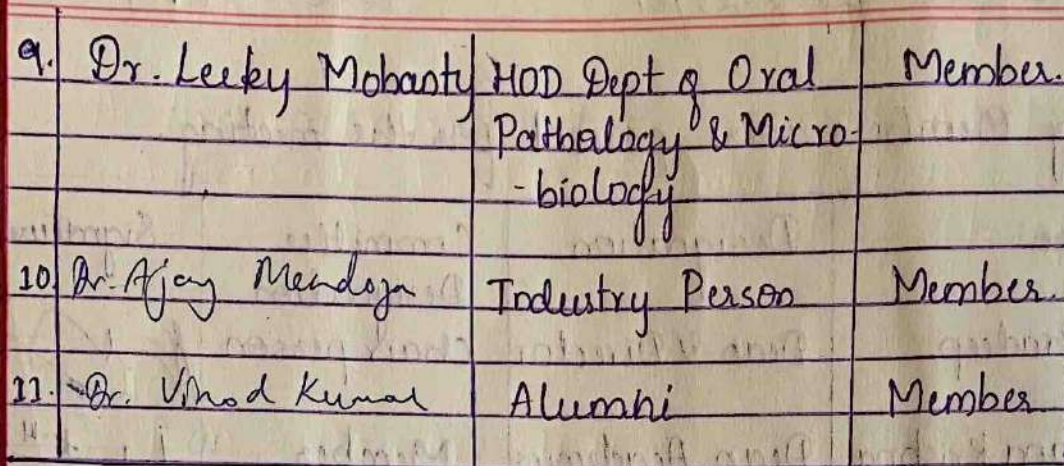 9. Dr. Leeky Mohanty HOD Dept of Oral Member.
Pathalogy & Micro-
-biology
10. Dr. Ajay Mendoza Industry Person Member.
11. Dr. Vinod Kumar Alumni Member